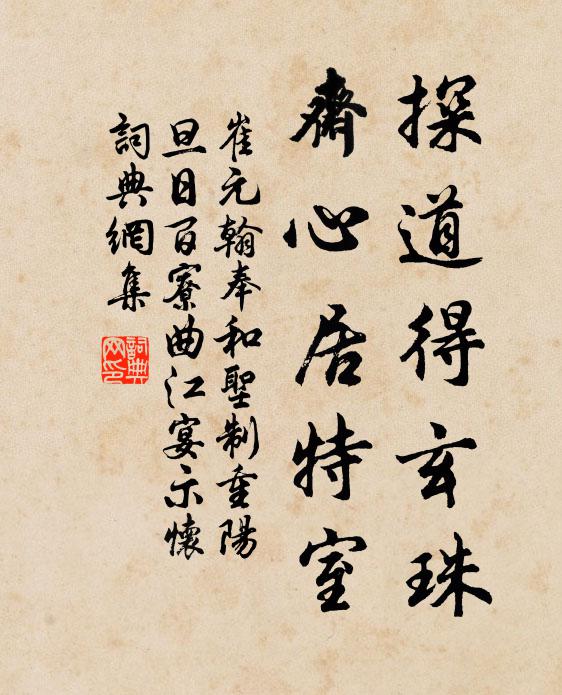 探道得玄珠
齋心居特室
崔元翰奉和聖制重陽
旦日百寮曲江宴示懷
詞典網集
詞典网印